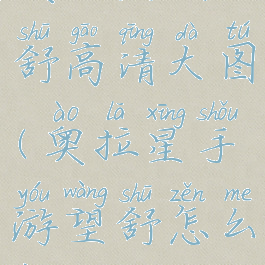 shū gāo qīng dà tú
舒高清大图
ào lā xīng shǒu
(奥拉星手
yóu wàng shū zěn me
游望舒怎么